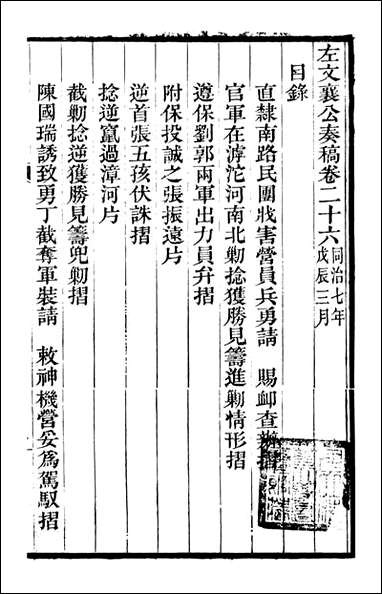 左文襄公奏稿卷二十六 同治七年戊辰三月
目錄
直隸南路民團戕害營員兵勇請 賜卹查辦摺
官軍在滹沱河南北勦捻獲勝見籌進勦情形摺
遵保劉郭兩軍出力員弁摺
附保投誠之張振遠片
逆首張五孩伏誅摺
捻逆竄過漳河片
截勦捻逆獲勝見籌兜勦摺
陳國瑞誘致勇丁截奪軍裝請 敕神機營妥為駕馭摺